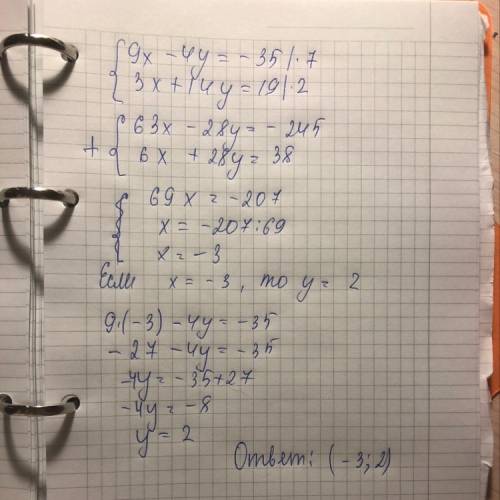 9x - 4y = - 35 | · 7
3x + 14y = 19 | · 2
+ 63x - 28y = - 245
6x + 28y = 38
69x = -207
x = -207:69
x = -3
Если x = -3, то y = 2
9·(-3) - 4y = -35
- 27 - 4y = -35
-4y = -35+27
-4y = -8
y = 2
Ответ: (-3; 2)